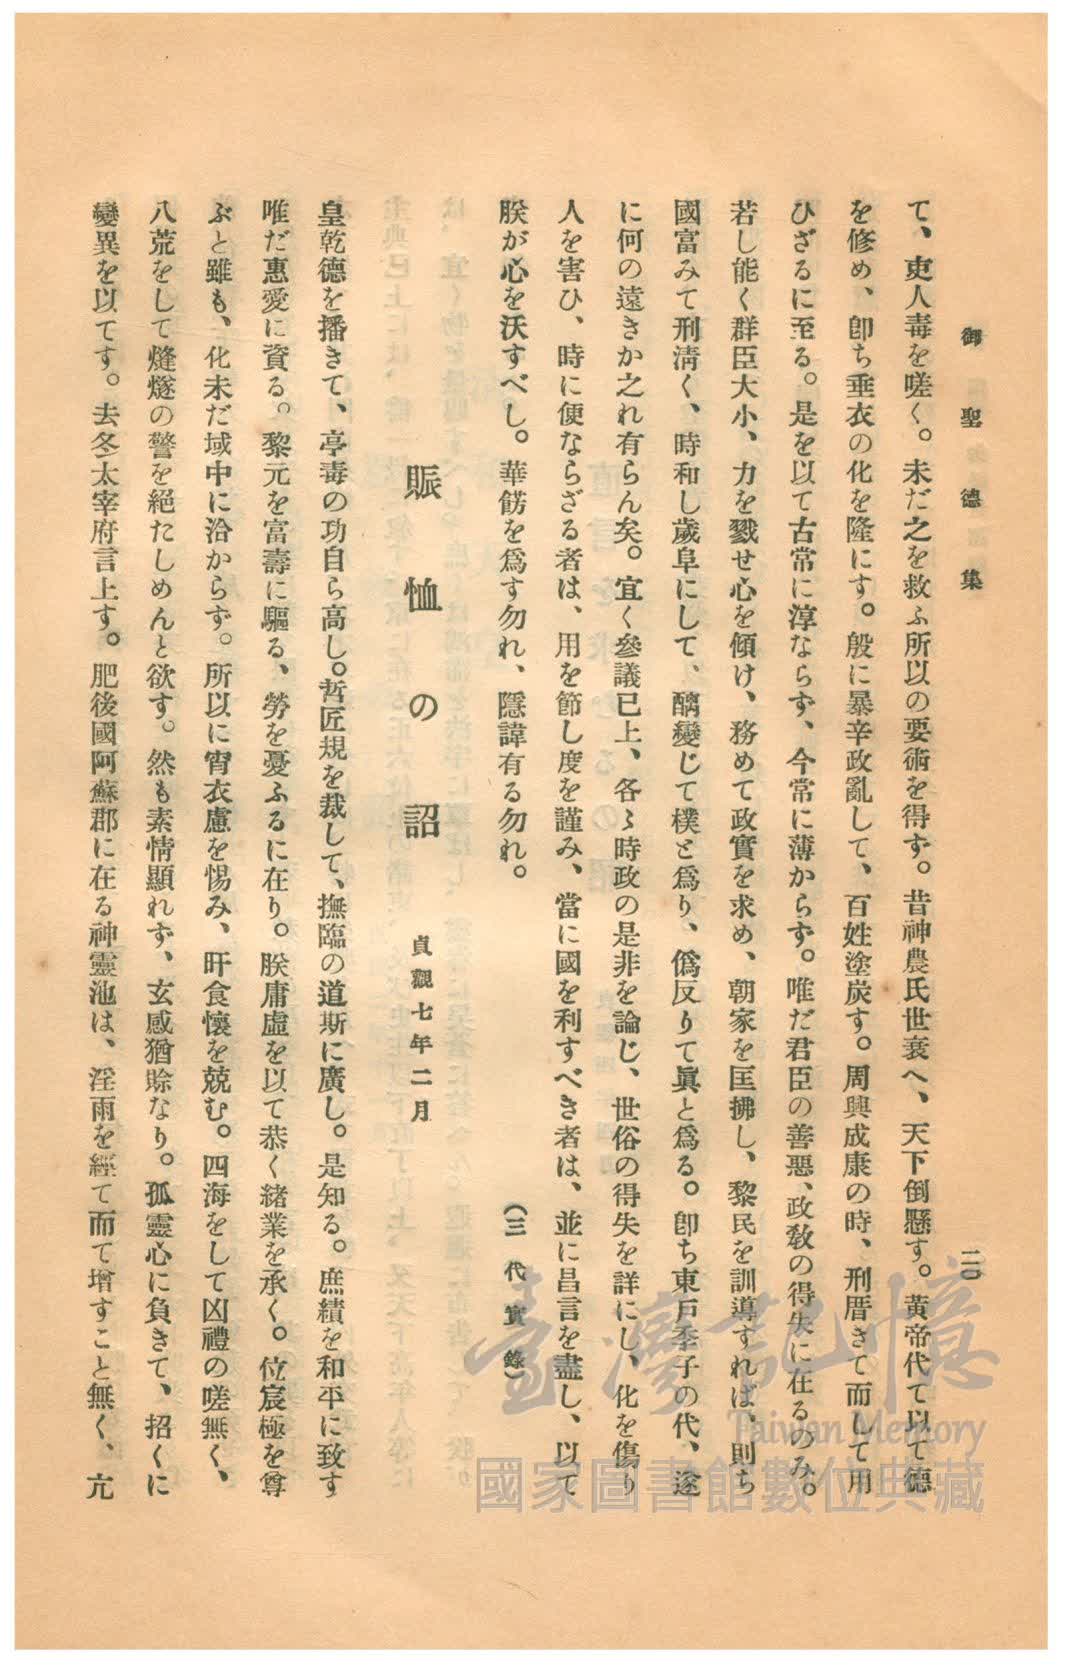 御聖德集
二〇
て、吏人毒を嗟く。未だ之を救ふ所以の要術を得ず。昔神農氏世衰へ、天下倒懸す。黃帝代て以て德
を修め、卽ち垂衣の化を隆にす。殷に暴辛政亂して、百姓塗炭す。周興成康の時、刑厝きて而して用
ひざるに至る。是を以て古常に淳ならず、今常に薄からず。唯だ君臣の善惡、政敎の得失に在るのみ。
若し能く群臣大小、力を戮せ心を傾け、務めて政實を求め、朝家を匡拂し、黎民を訓導すれば、則ち
國富みて刑淸く、時和し歲阜にして、醨變じて樸と爲り、僞反りて眞と爲る。卽ち東戶季子の代、邃
に何の遠きか之れ有らん矣。宜く參議已上、各〻時政の是非を論じ、世俗の得失を詳にし、化を傷り
人を害ひ、時に便ならざる者は、用を節し度を謹み、當に國を利すべき者は、並に昌言を盡し、以て
朕が心を沃すべし。華餝を爲す勿れ、隱諱有る勿れ。
（三代實錄）
賑恤の詔
貞觀七年二月
皇乾德を播きて、亭毒の功自ら高し。哲匠規を裁して、撫臨の道斯に廣し。是知る。庶績を和平に致す
唯だ惠愛に資る。黎元を富壽に驅る、勞を憂ふるに在り。朕庸虛を以て恭く緒業を承く。位宸極を尊
ぶと雖も、化未だ域中に洽からず。所以に宵衣慮を惕み、旰食懷を兢む。四海をして凶禮の嗟無く、
八荒をして熢燧の警を絕たしめんと欲す。然も素情顯れず、玄感猶賒なり。孤靈心に負きて、招くに
變異を以てす。去冬太宰府言上す。肥後國阿蘇郡に在る神靈池は、淫雨を經て而て增すこと無く、亢
臺灣記憶
Taiwan Memory
國家圖書館數位典藏